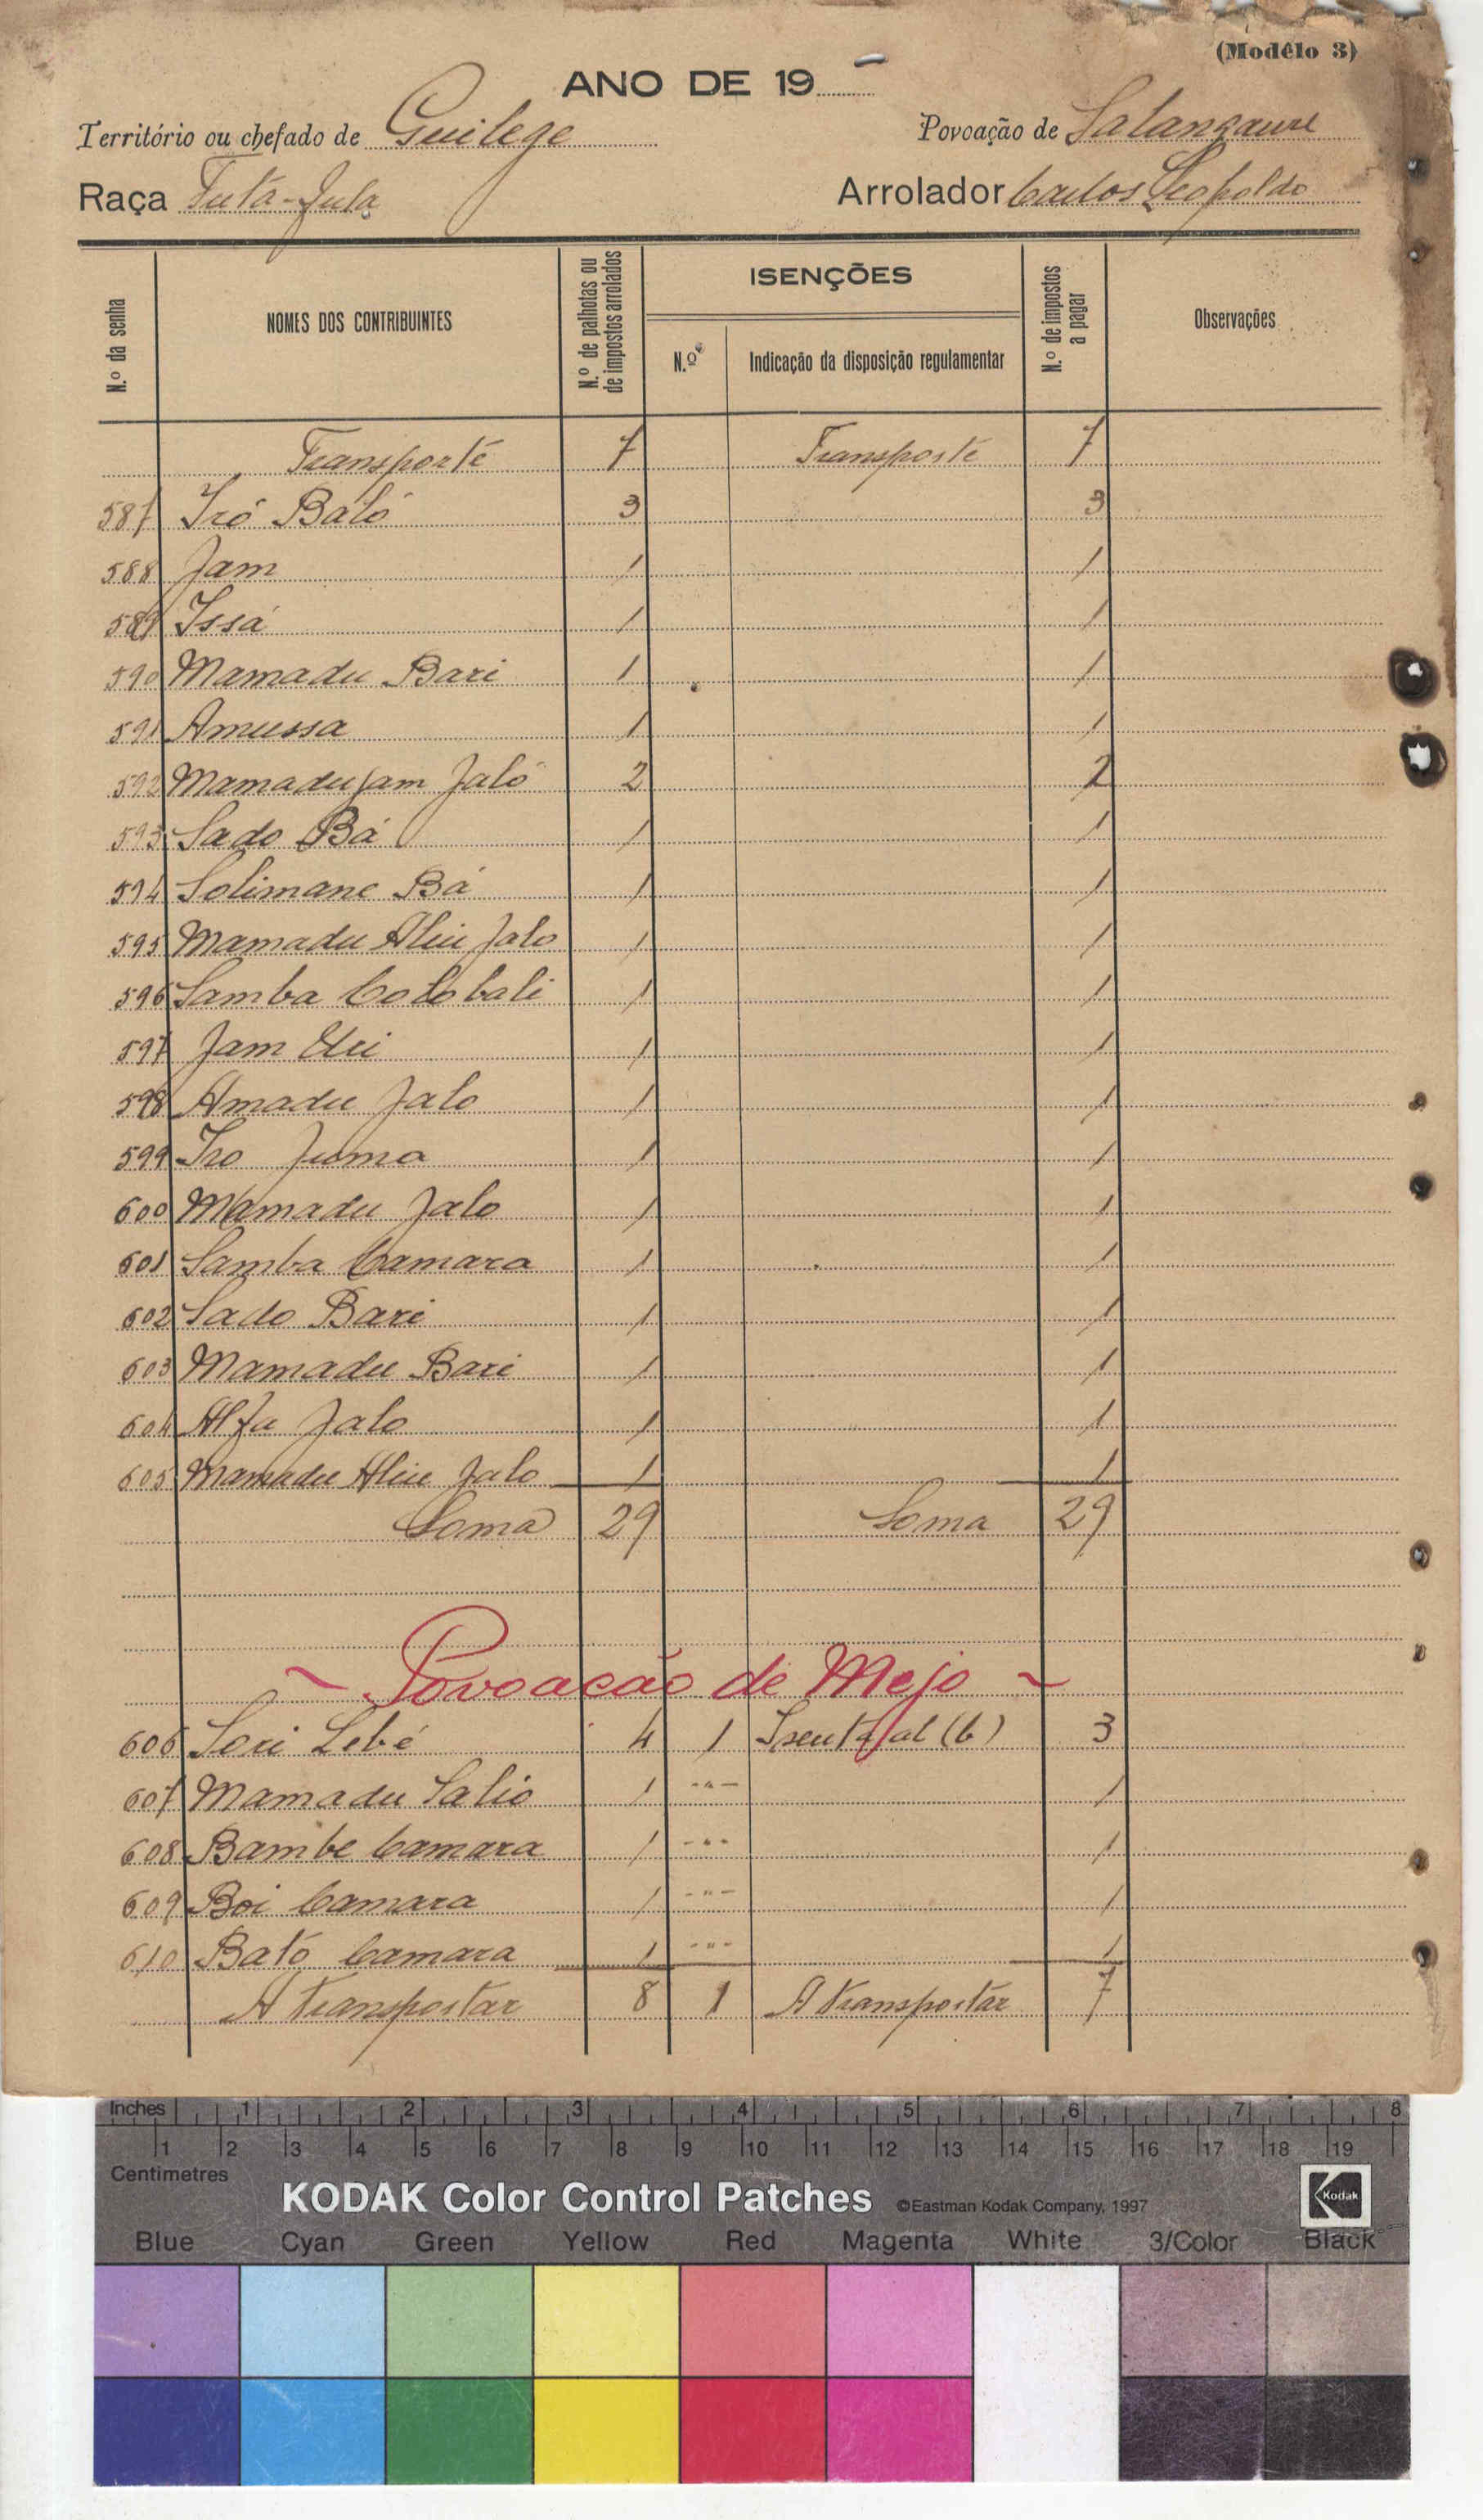 (Modêlo 3)
ANO DE 19 –
Território ou chefado de Guilege Povoação de Salanzaure
Raça Futa-Fula Arrolador Carlos Leopoldo
N.º da senha NOMES DOS CONTRIBUINTES N.º de palhotas ou de impostos arrolados ISENÇÕES N.º de impostos a pagar Observações
N.os Indicação da disposição regulamentar
Transporte 7 Transporte 7
587 Iró Baló 3 3
588 Jam 1 1
589 Issá 1 1
590 Mamadu Bari 1 1
591 Amussa 1 1
592 Mamadu Jam Jaló 2 2
593 Sado Bá 1 1
594 Solimane Bá 1 1
595 Mamadu Aliu Jalo 1 1
596 Samba Colobali 1 1
597 Jam 1 1
598 Amadu Jalo 1 1
599 Iro Juma 1 1
600 Mamadu Jalo 1 1
601 Samba Camara 1 1
602 Sado Bari 1 1
603 Mamadu Bari 1 1
604 Alfa Jalo 1 1
605 Mamadu Aliu Jalo 1 1
Soma 29 Soma 29
~ Povoacão de Mejo ~
606 Sori Lebé 4 1 Isenta al (b) 3
607 Mamadu Salio 1 -"- 1
608 Bambe Camara 1 -"- 1
609 Boi Camara 1 -"- 1
610 Bató Camara 1 -"- 1
A transportar 8 1 A transportar 7
Inches 1 2 3 4 5 6 7 8
1 2 3 4 5 6 7 8 9 10 11 12 13 14 15 16 17 18 19
Centimetres
KODAK Color Control Patches ©Eastman Kodak Company, 1997 Kodak
Blue Cyan Green Yellow Red Magenta White 3/Color Black